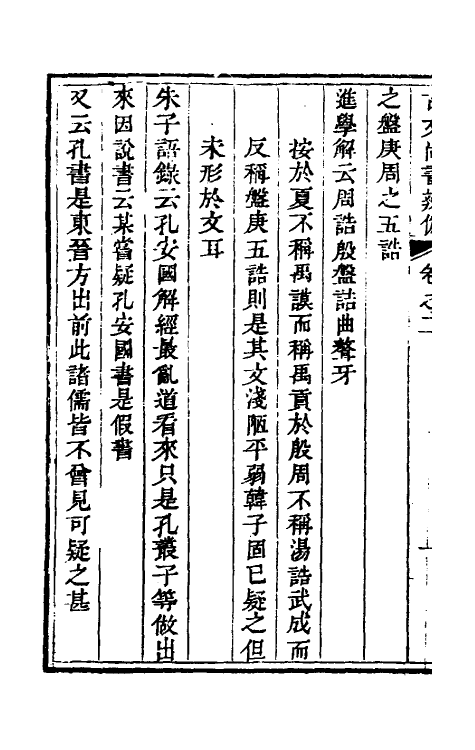 古文尚書辨偽 卷之二
之盤庚周之五誥
進學解云周誥殷盤詰曲聱牙
按於夏不稱禹謨而稱禹貢於殷周不稱湯誥武成而
反稱盤庚五誥則是其文淺陋平弱韓子固已疑之但
未形於文耳
朱子語錄云孔安國解經最亂道看來只是孔叢子等做出
來因說書云某嘗疑孔安國書是假書
又云孔書是東晉方出前此諸儒皆不曾見可疑之甚